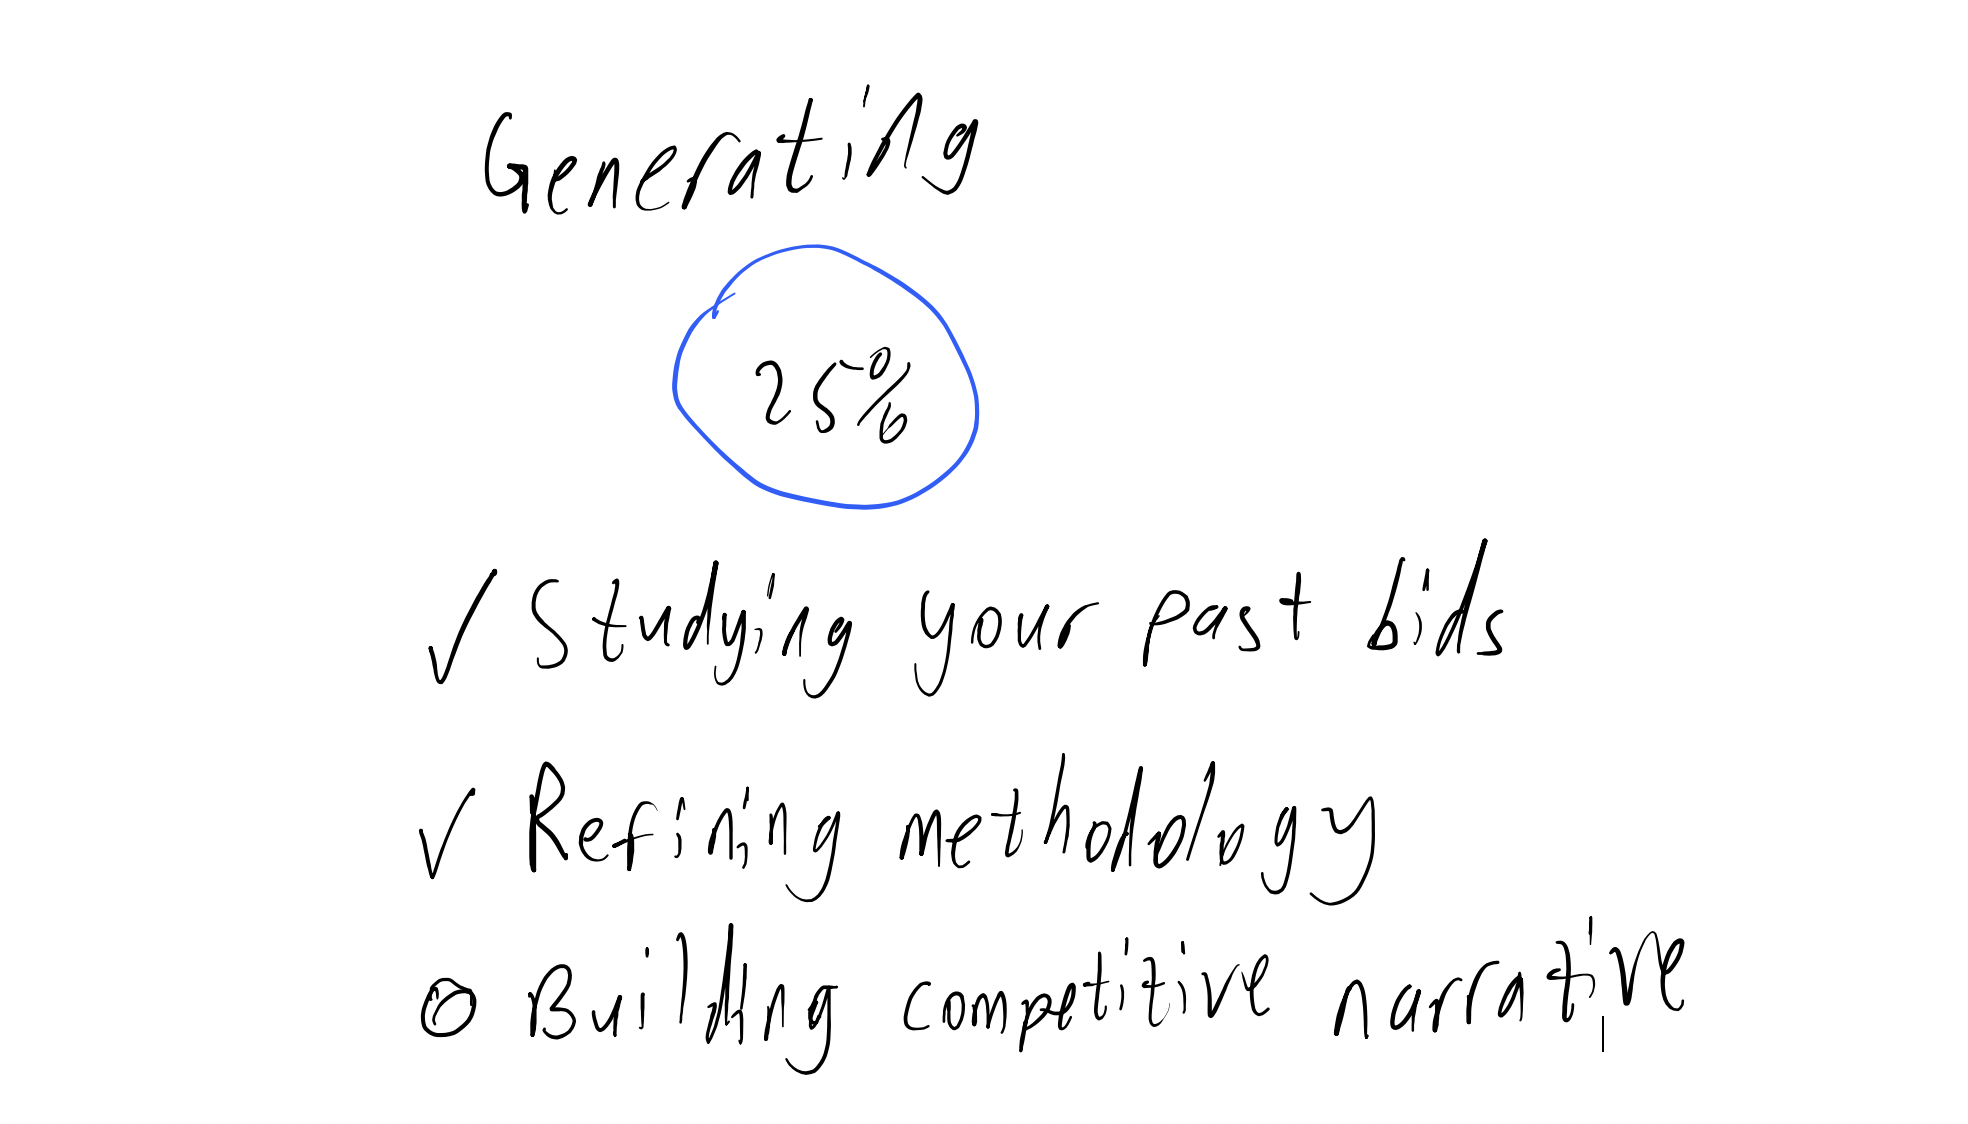 Generating
25%
✓ Studying your past bids
✓ Refining methodology
Building competitive narrative